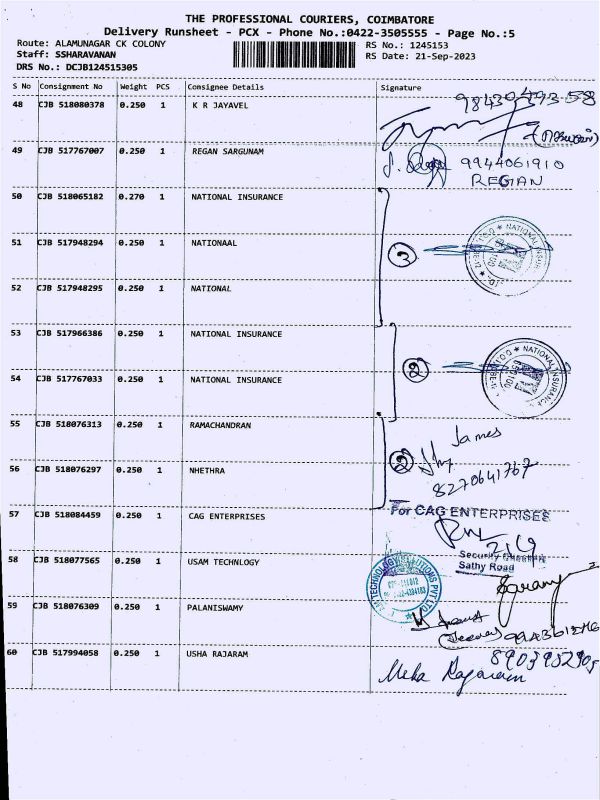 THE PROFESSIONAL COURIERS, COIMBATORE
Delivery Runsheet - PCX - Phone No.:0422-3505555 - Page No.:5
Route: ALAMUNAGAR CK COLONY
RS No.: 1245153
Staff: SSHARAVANAN
RS Date: 21-Sep-2023
DRS No.: DCJB124515305
S No Consignment No Weight PCS Consignee Details Signature
48 CJB 518080378 0.250 1 K R JAYAVEL
49 CJB 517767007 0.250 1 REGAN SARGUNAM 9944061910
REGAN
50 CJB 518065182 0.270 1 NATIONAL INSURANCE
51 CJB 517948294 0.250 1 NATIONAAL
3
52 CJB 517948295 0.250 1 NATIONAL
53 CJB 517966386 0.250 1 NATIONAL INSURANCE
2
54 CJB 517767033 0.250 1 NATIONAL INSURANCE
55 CJB 518076313 0.250 1 RAMACHANDRAN
James
56 CJB 518076297 0.250 1 NHETHRA
2
8270641767
57 CJB 518084459 0.250 1 CAG ENTERPRISES
For CAG ENTERPRISES
Sathy Road
58 CJB 518077565 0.250 1 USAM TECHNLOGY
59 CJB 518076309 0.250 1 PALANISWAMY
60 CJB 517994058 0.250 1 USHA RAJARAM
Rajaram